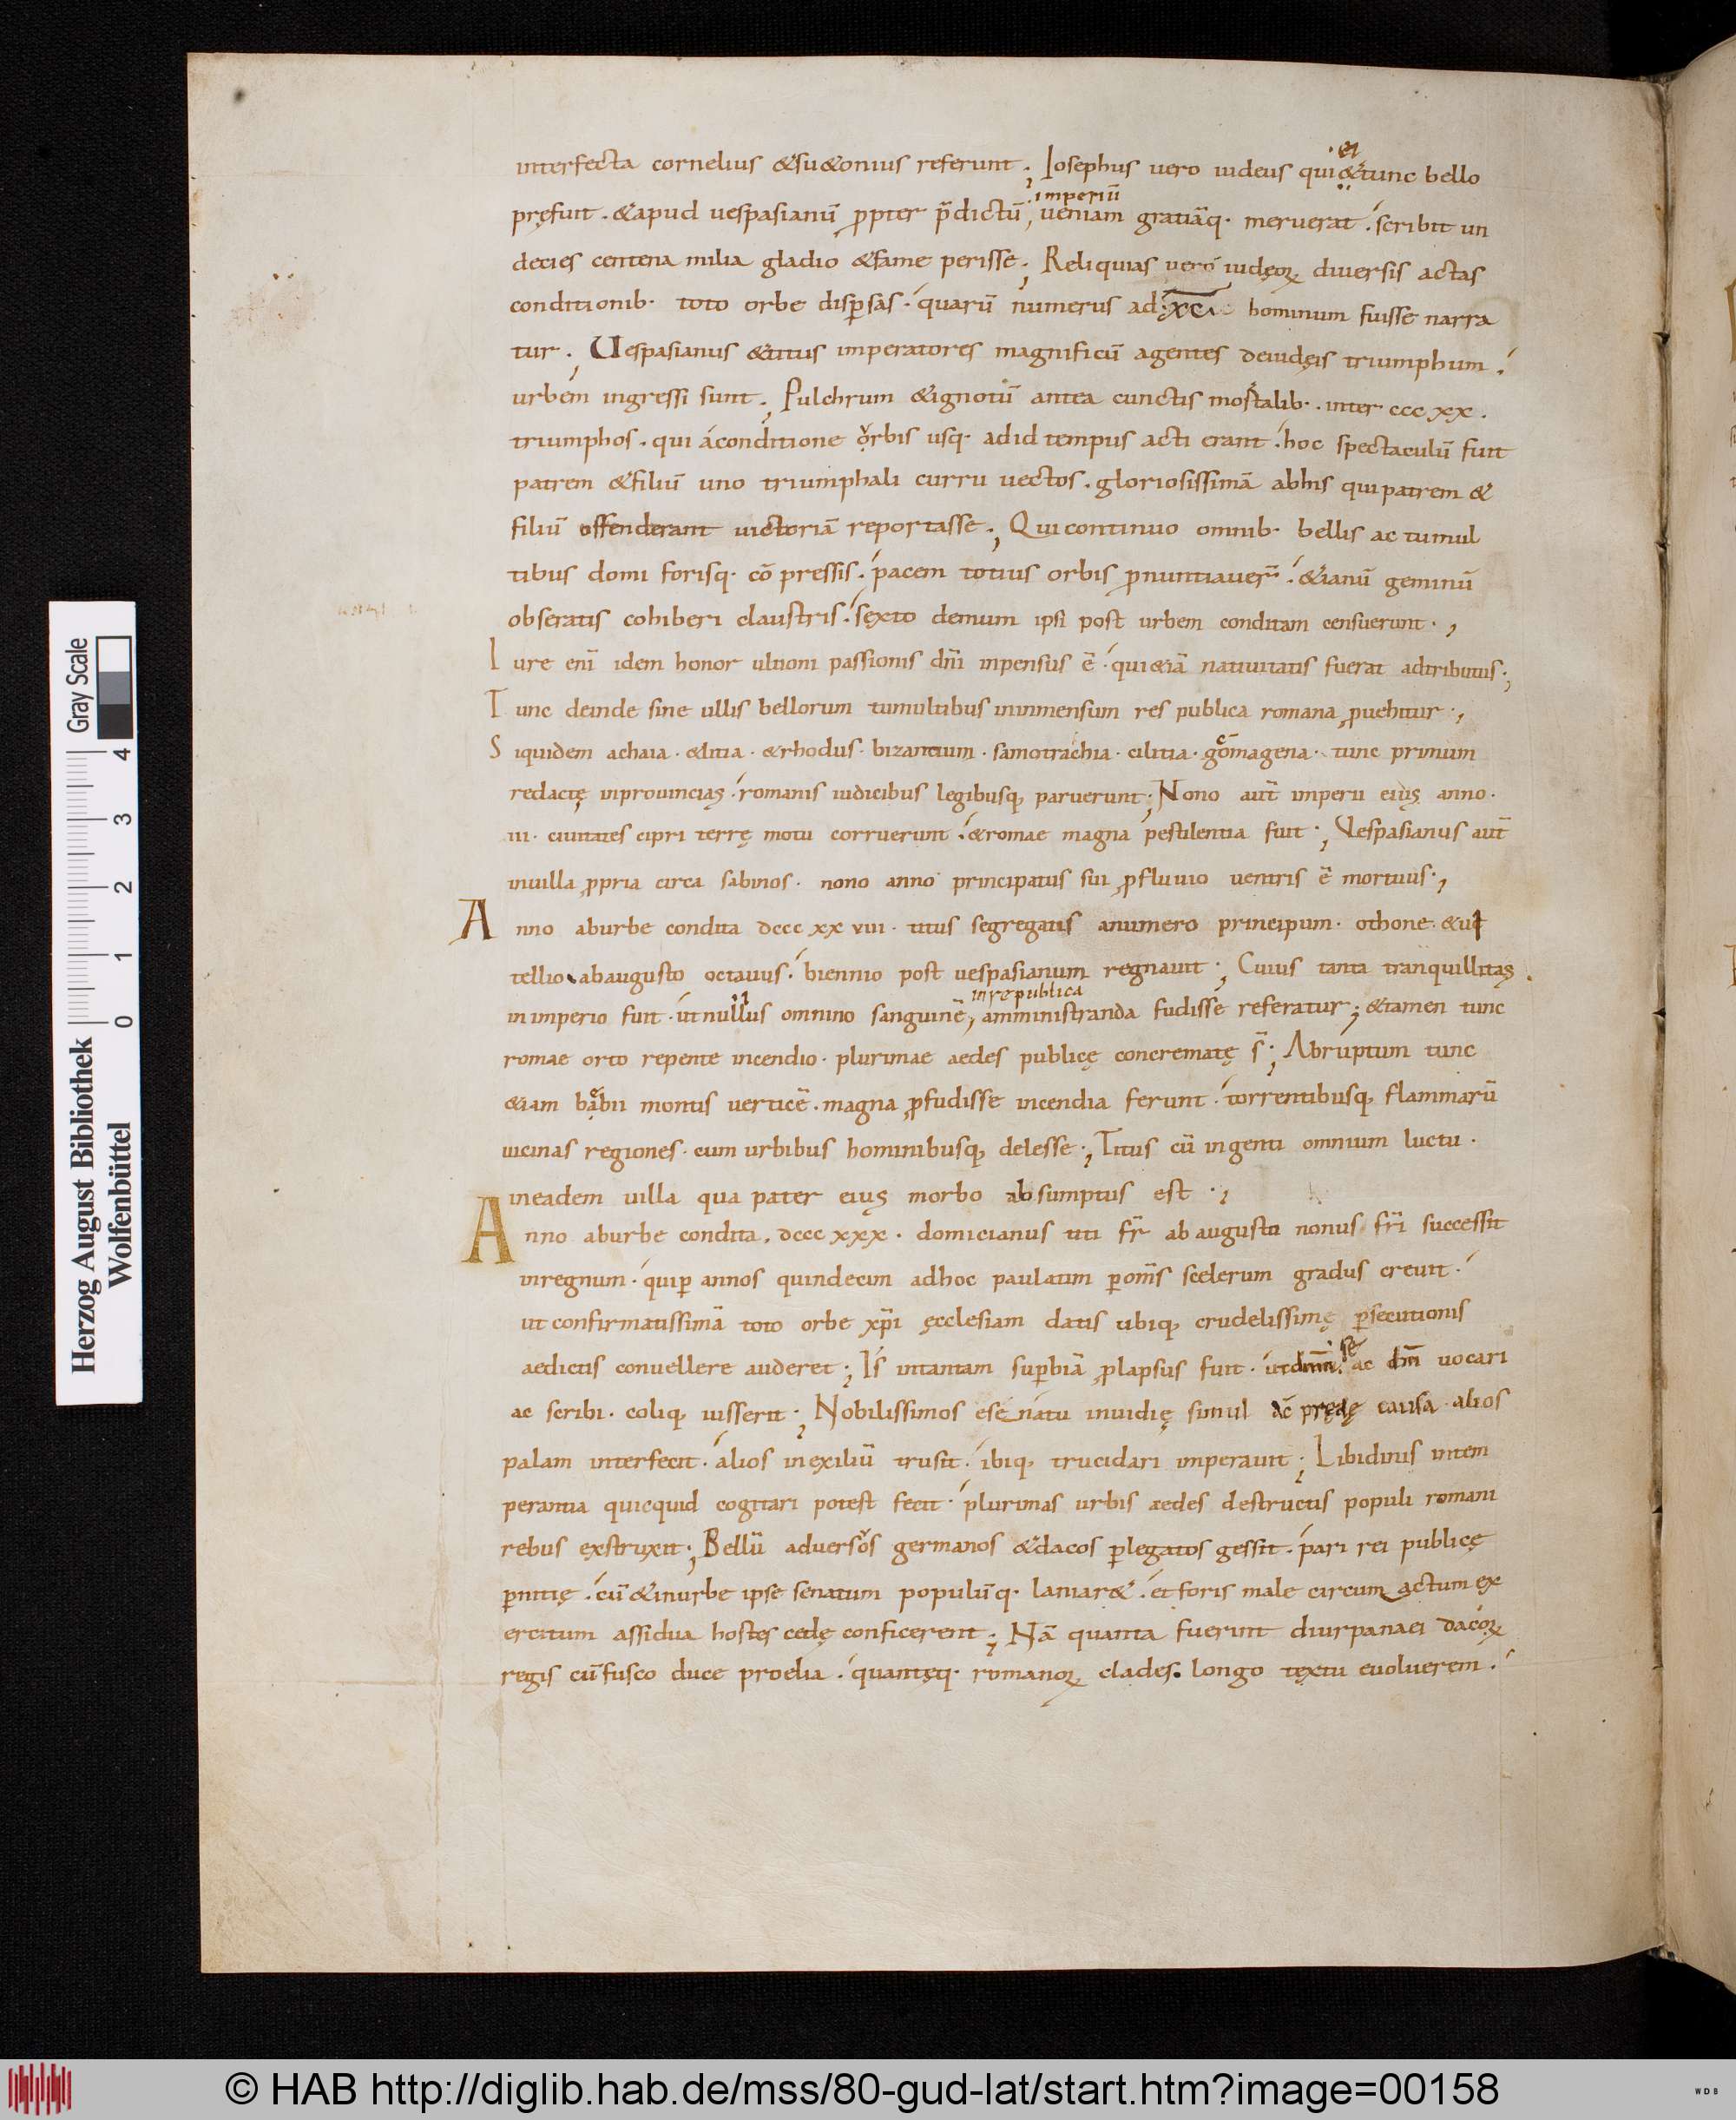 interfecta cornelius &su&onius referunt; Iosephus uero iudeus qui &tunc bello
et
imperiū
pręfuit. &apud uespasianū ꝓpter p̄dictū, ueniam gratiāq· meruerat. scribit un
decies centena milia gladio &fame perisse; Reliquias uero iudęoꝝ diuersis actas
conditionib· toto orbe disꝑsas. quarū numerus ad xc hominum fuisse narra
tur; Uespasianus &titus imperatores magnificū agentes deiudęis triumphum.
urbem ingressi sunt; Pulchrum &ignotū antea cunctis mortalib·. inter ccc xx.
triumphos. qui aconditione orbis usq· adid tempus acti erant. hoc spectaculū fuit
patrem &filiū uno triumphali curru uectos. gloriosissimā abhis quipatrem &
filiū offenderant uictoriā reportasse; Qui continuo omnib· bellis ac tumul
tibus domi forisq· cō pressis. pacem totius orbis ꝓnuntiauer̄. &ianū geminū
obseratis cohiberi claustris. sęxto demum ipsi post urbem conditam censuerunt;
Iure enī idem honor ultioni passionis dn̄i inpensus ē. qui&iā natiuitatis fuerat adtributus;
Tunc deinde sine ullis bellorum tumultibus ininmensum res publica romana ꝓuehitur;
Siquidem achaia· &litia· &rhodus· bizantium· samotrachia· cilitia· gōmagena· tunc primum
c
redactę inprouincias. romanis iudicibus legibusq, paruerunt; Nono aut̄ imperii eius anno·
iii· ciuitates cipri terrę motu corruerunt. &romae magna pestilentia fuit; Uespasianus aut̄
inuilla ꝓpria circa sabinos· nono anno principatus sui ꝓfluuio uentris ē mortuus;
Anno aburbe condita dccc xx viii· titus segregatis anumero principum· othone &ui
tellio abaugusto octauus. biennio post uespasianum regnauit; Cuius tanta tranquillitas.
in republica
inimperio fuit· ut nullus omnino sanguinē, amministranda fudisse referatur; &tamen tunc
romae orto repente incendio· plurimae aedes publicę concrematę s̄; Abruptum tunc
&iam babii montis uerticē. magna ꝓfudisse incendia ferunt. torrentibusq, flammarū
uicinas regiones· cum urbibus hominibusq, delesse; Titus cū ingenti omnium luctu·
ineadem uilla qua pater eius morbo absumptus est;
Anno aburbe condita. dccc xxx· domicianus titi fr̄ ab augusto nonus fr̄i successit
inregnum. quiꝑ annos quindecim adhoc paulatim ꝑom̄s scelerum gradus creuit.
ut confirmatissimā toto orbe xp̄i ęcclesiam datis ubiq, crudelissimę ꝑsecutionis
aedictis conuellere auderet; Is intantam suꝑbiā ꝓlapsus fuit· ut dnm̄ ac dm̄ uocari
se
ac scribi· coliq, iusserit; Nobilissimos ese natu inuidię simul ac pręde causa· alios
palam interfecit. alios inexiliū trusit. ibiq, trucidari imperauit; Libidinis intem
perantia quicquid cogitari potest fecit. plurimas urbis aedes destructis populi romani
rebus exstruxit; Bellū aduersos germanos &dacos ꝑlegatos gessit. pari rei publicę
ꝑnitię. cū &inurbe ipse senatum populūq· laniar&. et foris male circum actum ex
ercitum assidua hostes cedę conficerent; Nā quanta fuerint diurpanaei dacoꝝ
regis cū fusco duce proelia. quantęq· romanoꝝ clades. longo textu euoluerem.
Gray Scale
4 3 2 1 0
Herzog August Bibliothek
Wolfenbüttel
© HAB http://diglib.hab.de/mss/80-gud-lat/start.htm?image=00158
WDB